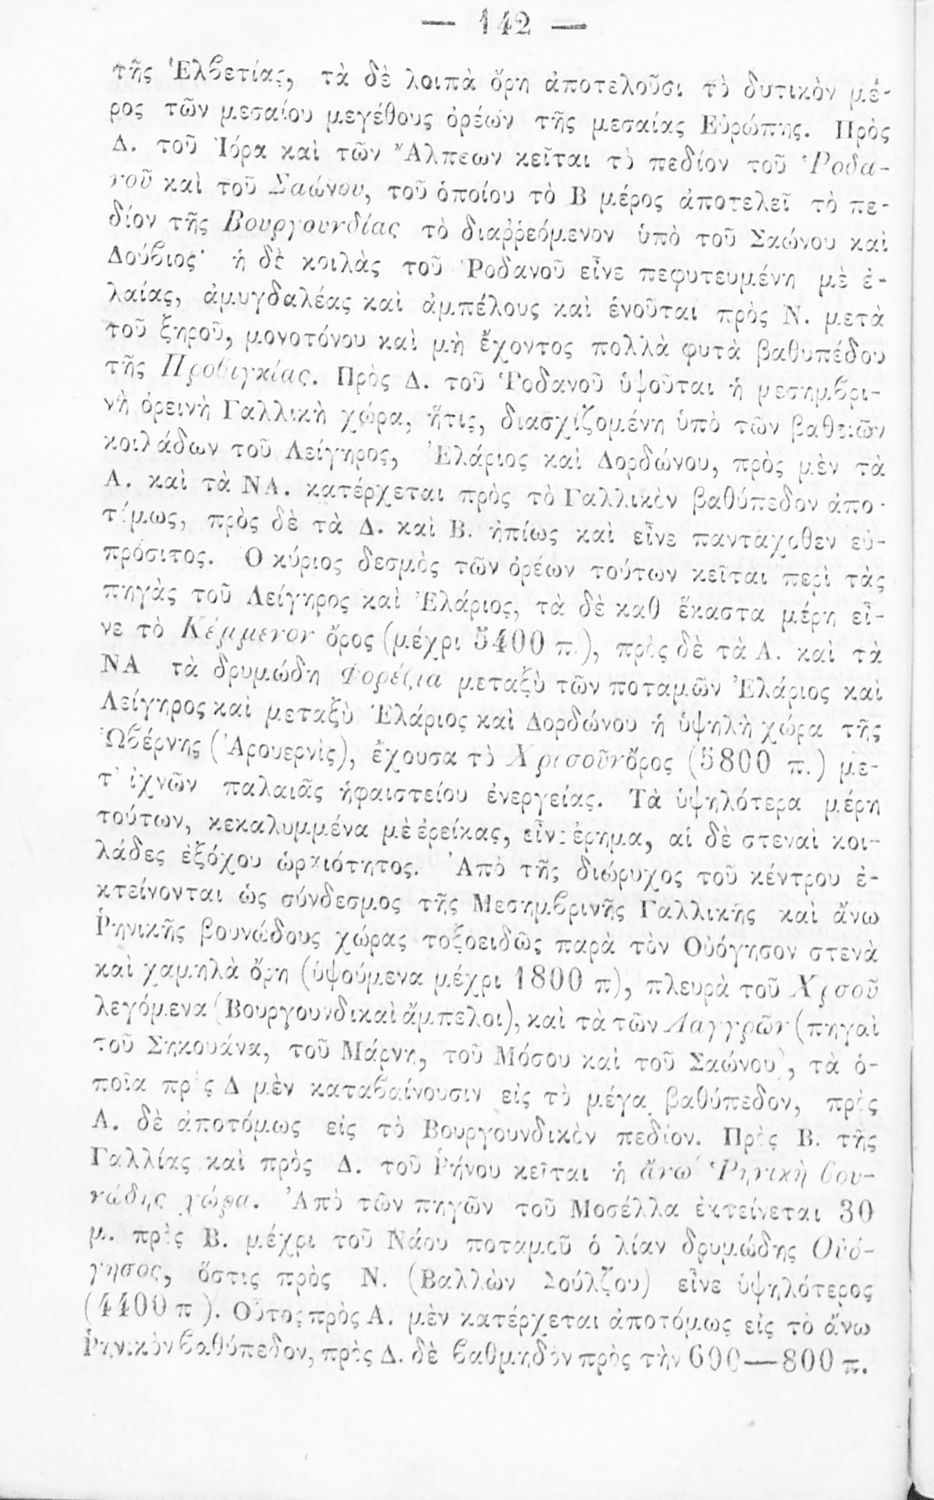 — 142 —
τῆς Ἑλβετίας, τὰ δὲ λοιπὰ ὄρη ἀποτελοῦσι τὸ δυτικὸν μέ-
ρος τῶν μεσαίου μεγέθους ὀρέων τῆς μεσαίας Εὐρώπης. Πρὸς
Δ. τοῦ Ἰόρα καὶ τῶν Ἄλπεων κεῖται τὸ πεδίον τοῦ Ῥοδα-
νοῦ καὶ τοῦ Σαώνου, τοῦ ὁποίου τὸ Β μέρος ἀποτελεῖ τὸ πε-
δίον τῆς Βουργουνδίας τὸ διαῤῥεόμενον ὑπὸ τοῦ Σαώνου καὶ
Δούβιος· ἡ δὲ κοιλὰς τοῦ Ῥοδανοῦ εἶνε πεφυτευμένη μὲ ἐ-
λαίας, ἀμυγδαλέας καὶ ἀμπέλους καὶ ἑνοῦται πρὸς Ν. μετὰ
τοῦ ξηροῦ, μονοτόνου καὶ μὴ ἔχοντος πολλὰ φυτὰ βαθυπέδου
τῆς Προβιγκίας. Πρὸς Δ. τοῦ Ῥοδανοῦ ὑψοῦται ἡ μεσημβρι-
νὴ ὀρεινὴ Γαλλικὴ χώρα, ἥτις, διασχιζομένη ὑπὸ τῶν βαθειῶν
κοιλάδων τοῦ Λείγηρος, Ἐλάριος καὶ Δορδώνου, πρὸς μὲν τὰ
Α. καὶ τὰ ΝΑ. κατέρχεται πρὸς τὸ Γαλλικὸν βαθύπεδον ἀπο-
τόμως, πρὸς δὲ τὰ Δ. καὶ Β. ἠπίως καὶ εἶνε πανταχόθεν εὐ-
πρόσιτος. Ὁ κύριος δεσμὸς τῶν ὀρέων τούτων κεῖται περὶ τὰς
πηγὰς τοῦ Λείγηρος καὶ Ἐλάριος, τὰ δὲ καθ ἕκαστα μέρη εἶ-
νε τὸ Κέμμενον ὄρος (μέχρι 5400 π.), πρὸς δὲ τὰ Α. καὶ τὰ
ΝΑ τὰ δρυμώδη Φορέζια μεταξὺ τῶν ποταμῶν Ἐλάριος καὶ
Λείγηρος καὶ μεταξὺ Ἐλάριος καὶ Δορδώνου ἡ ὑψηλὴ χώρα τῆς
Ὠβέρνης (Ἀρουερνὶς), ἔχουσα τὸ Χρυσοῦν ὄρος (5800 π.) με-
τ' ἰχνῶν παλαιᾶς ἡφαιστείου ἐνεργείας. Τὰ ὑψηλότερα μέρη
τούτων, κεκαλυμμένα μὲ ἐρείκας, εἶνε ἔρημα, αἱ δὲ στεναὶ κοι-
λάδες ἐξόχου ὡραιότητος. Ἀπὸ τῆς διώρυχος τοῦ κέντρου ἐ-
κτείνονται ὡς σύνδεσμος τῆς Μεσημβρινῆς Γαλλικῆς καὶ ἄνω
Ῥηνικῆς βουνώδους χώρας τοξοειδῶς παρὰ τὸν Οὐόγησον στενὰ
καὶ χαμηλὰ ὄρη (ὑψούμενα μέχρι 1800 π), πλευρὰ τοῦ Χρσοῦ
λεγόμενα (Βουργουνδικαὶ ἄμπελοι), καὶ τὰ τῶν Λαγγρῶν (πηγαὶ
τοῦ Σηκουάνα, τοῦ Μάρνη, τοῦ Μόσου καὶ τοῦ Σαώνου), τὰ ὁ-
ποῖα πρὸς Δ μὲν καταβαίνουσιν εἰς τὸ μέγα βαθύπεδον, πρὸς
Α. δὲ ἀποτόμως εἰς τὸ Βουργουνδικὸν πεδίον. Πρὸς Β. τῆς
Γαλλίας καὶ πρὸς Δ. τοῦ Ῥήνου κεῖται ἡ ἄνω Ῥηνικὴ βου-
νώδης χώρα. Ἀπὸ τῶν πηγῶν τοῦ Μοσέλλα ἐκτείνεται 30
μ. πρὸς Β. μέχρι τοῦ Νάου ποταμοῦ ὁ λίαν δρυμώδης Οὐό-
γησος, ὅστις πρὸς Ν. (Βαλλὼν Σούλζου) εἶνε ὑψηλότερος
(4400 π). Οὗτος πρὸς Α. μὲν κατέρχεται ἀποτόμως εἰς τὸ ἄνω
Ῥηνικὸν βαθύπεδον, πρὸς Δ. δὲ βαθμηδὸν πρὸς τὴν 600—800 π.